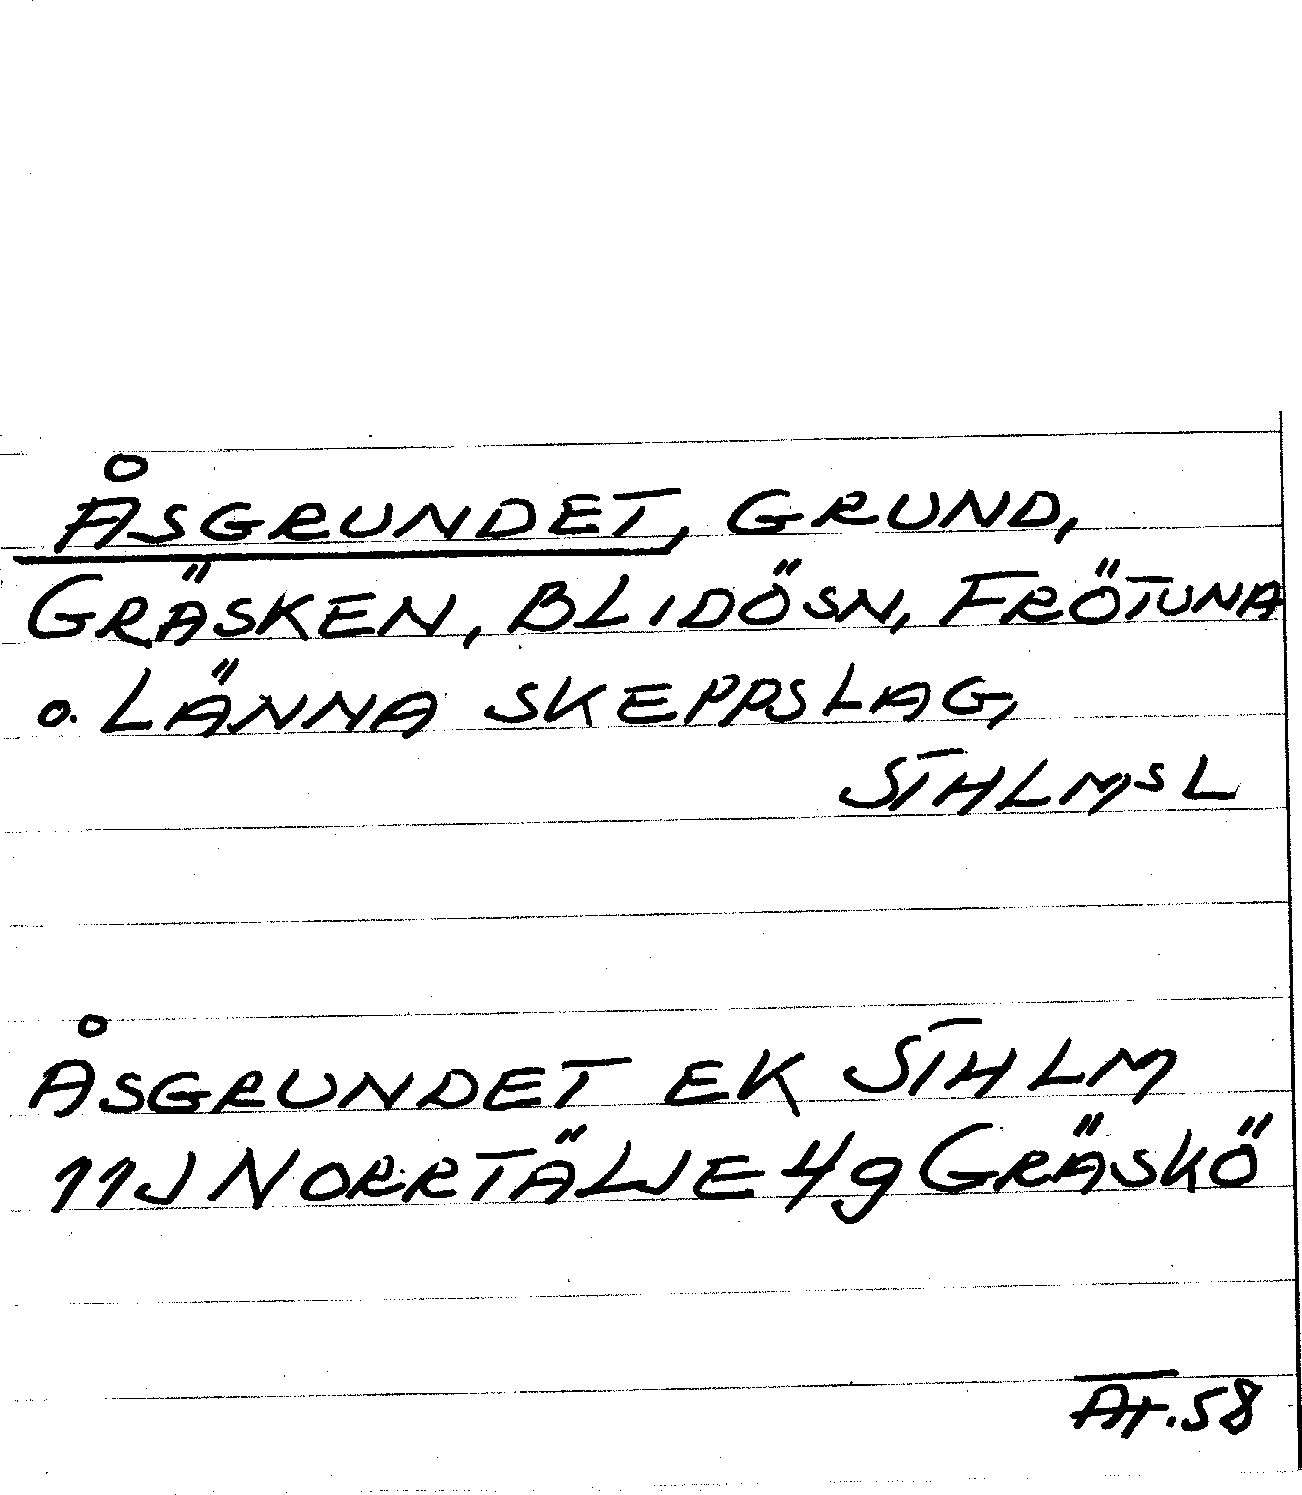 ÅSGRUNDET, GRUND,
GRÄSKEN, BLIDÖSN, FRÖTUNA
o. LÄNNA SKEPPSLAG,
STHLMS L
ÅSGRUNDET EK STHLM
11J NORRTÄLJE 4g GRÄSKÖ
58